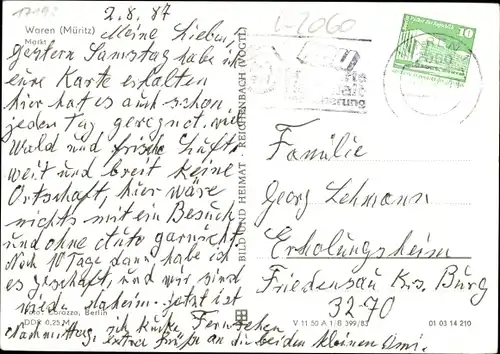 17192
2.8.87
L-2060
Waren (Müritz)
Markt
Meine Lieben,
gestern Samstag habe ich
eure Karte erhalten
hier hat es auch schon
jeden Tag geregnet. viel
Wald und frische Luft,
weit und breit keine
Ortschaft, hier wäre
nichts mit ein Besuch
und ohne Auto garnicht.
Noch 10 Tage dann habe ich
es geschaft, und wir sind
wieder daheim. jetzt ist
Nachmittag, ich kucke Fernsehen
extra Grüße an die beiden kleinen
Foto: Corazza, Berlin
DDR 0,25 M
BILD UND HEIMAT · REICHENBACH (VOGTL)
10
Familie
Georg Lehmann
Erholungsheim
Friedensau Krs. Burg
3270
V 11 50 A 1/B 399/83
01 03 14 210